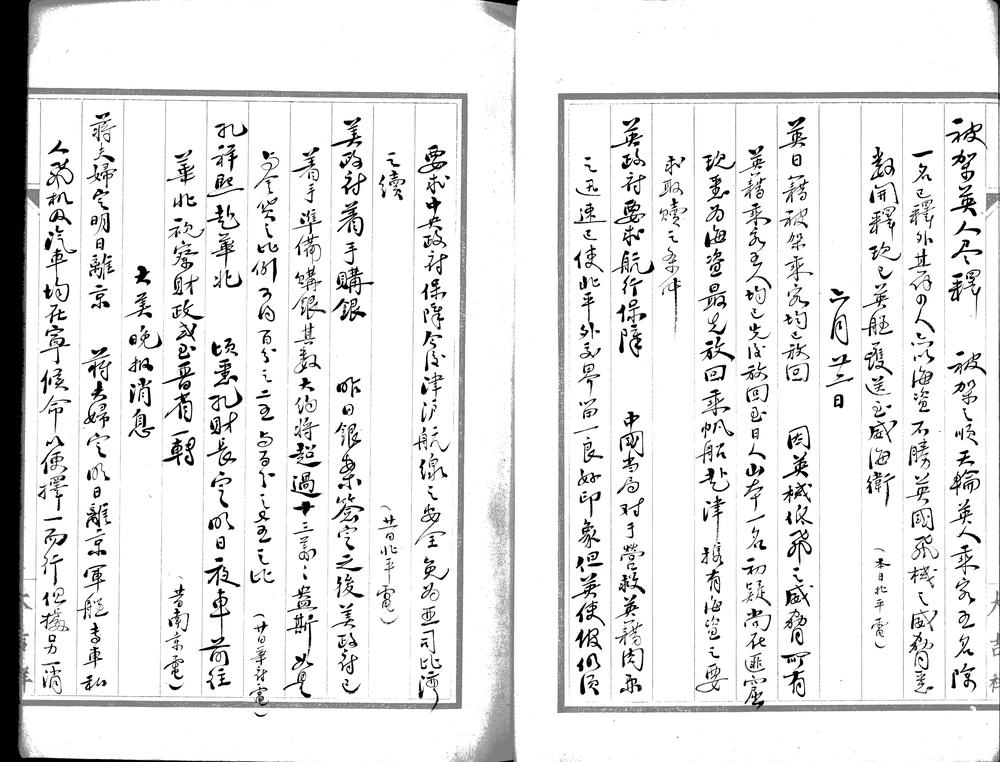 被架英人尽釋 被架之順天輪英人乘客五名除
一名已釋外其餘四人亦以海盗不勝英國飛機之威脅悉
數開釋現已英艇護送至威海衛 (本日北平電)
六月廿二日
英日籍被架乘客均已放回 因英機低飛之威脅所有
英籍乘客五人均已先後放回至日人山本一名初疑尚在匪窟
現悉为海盗最先放回乘帆船赴津携有海盗之要
求取贖之条件
英政府要求航行保障 中國当局对于營救英籍肉票
之迅速已使北平外交界留一良好印象但英使馆仍須
要求中央政府保障今後津沪航線之安全免为亜司比海
之續 (廿日北平電)
美政府着手購銀 昨日銀案簽定之後美政府已
着手準備購銀其数大约将超過十三萬万盎斯以是
与金货之比例可为百分之二五与百分之七五之比 (廿日華府電)
孔祥熙赴華北 頃悉孔財長定明日夜車前往
華北視察財政或至晋省一轉 (昔南京電)
大美晚报消息
蒋夫婦定明日離京 蒋夫婦定明日離京軍艇专車私
人飛机及汽車均在寧候命以便擇一而行但據另一消
大吉祥
大吉祥